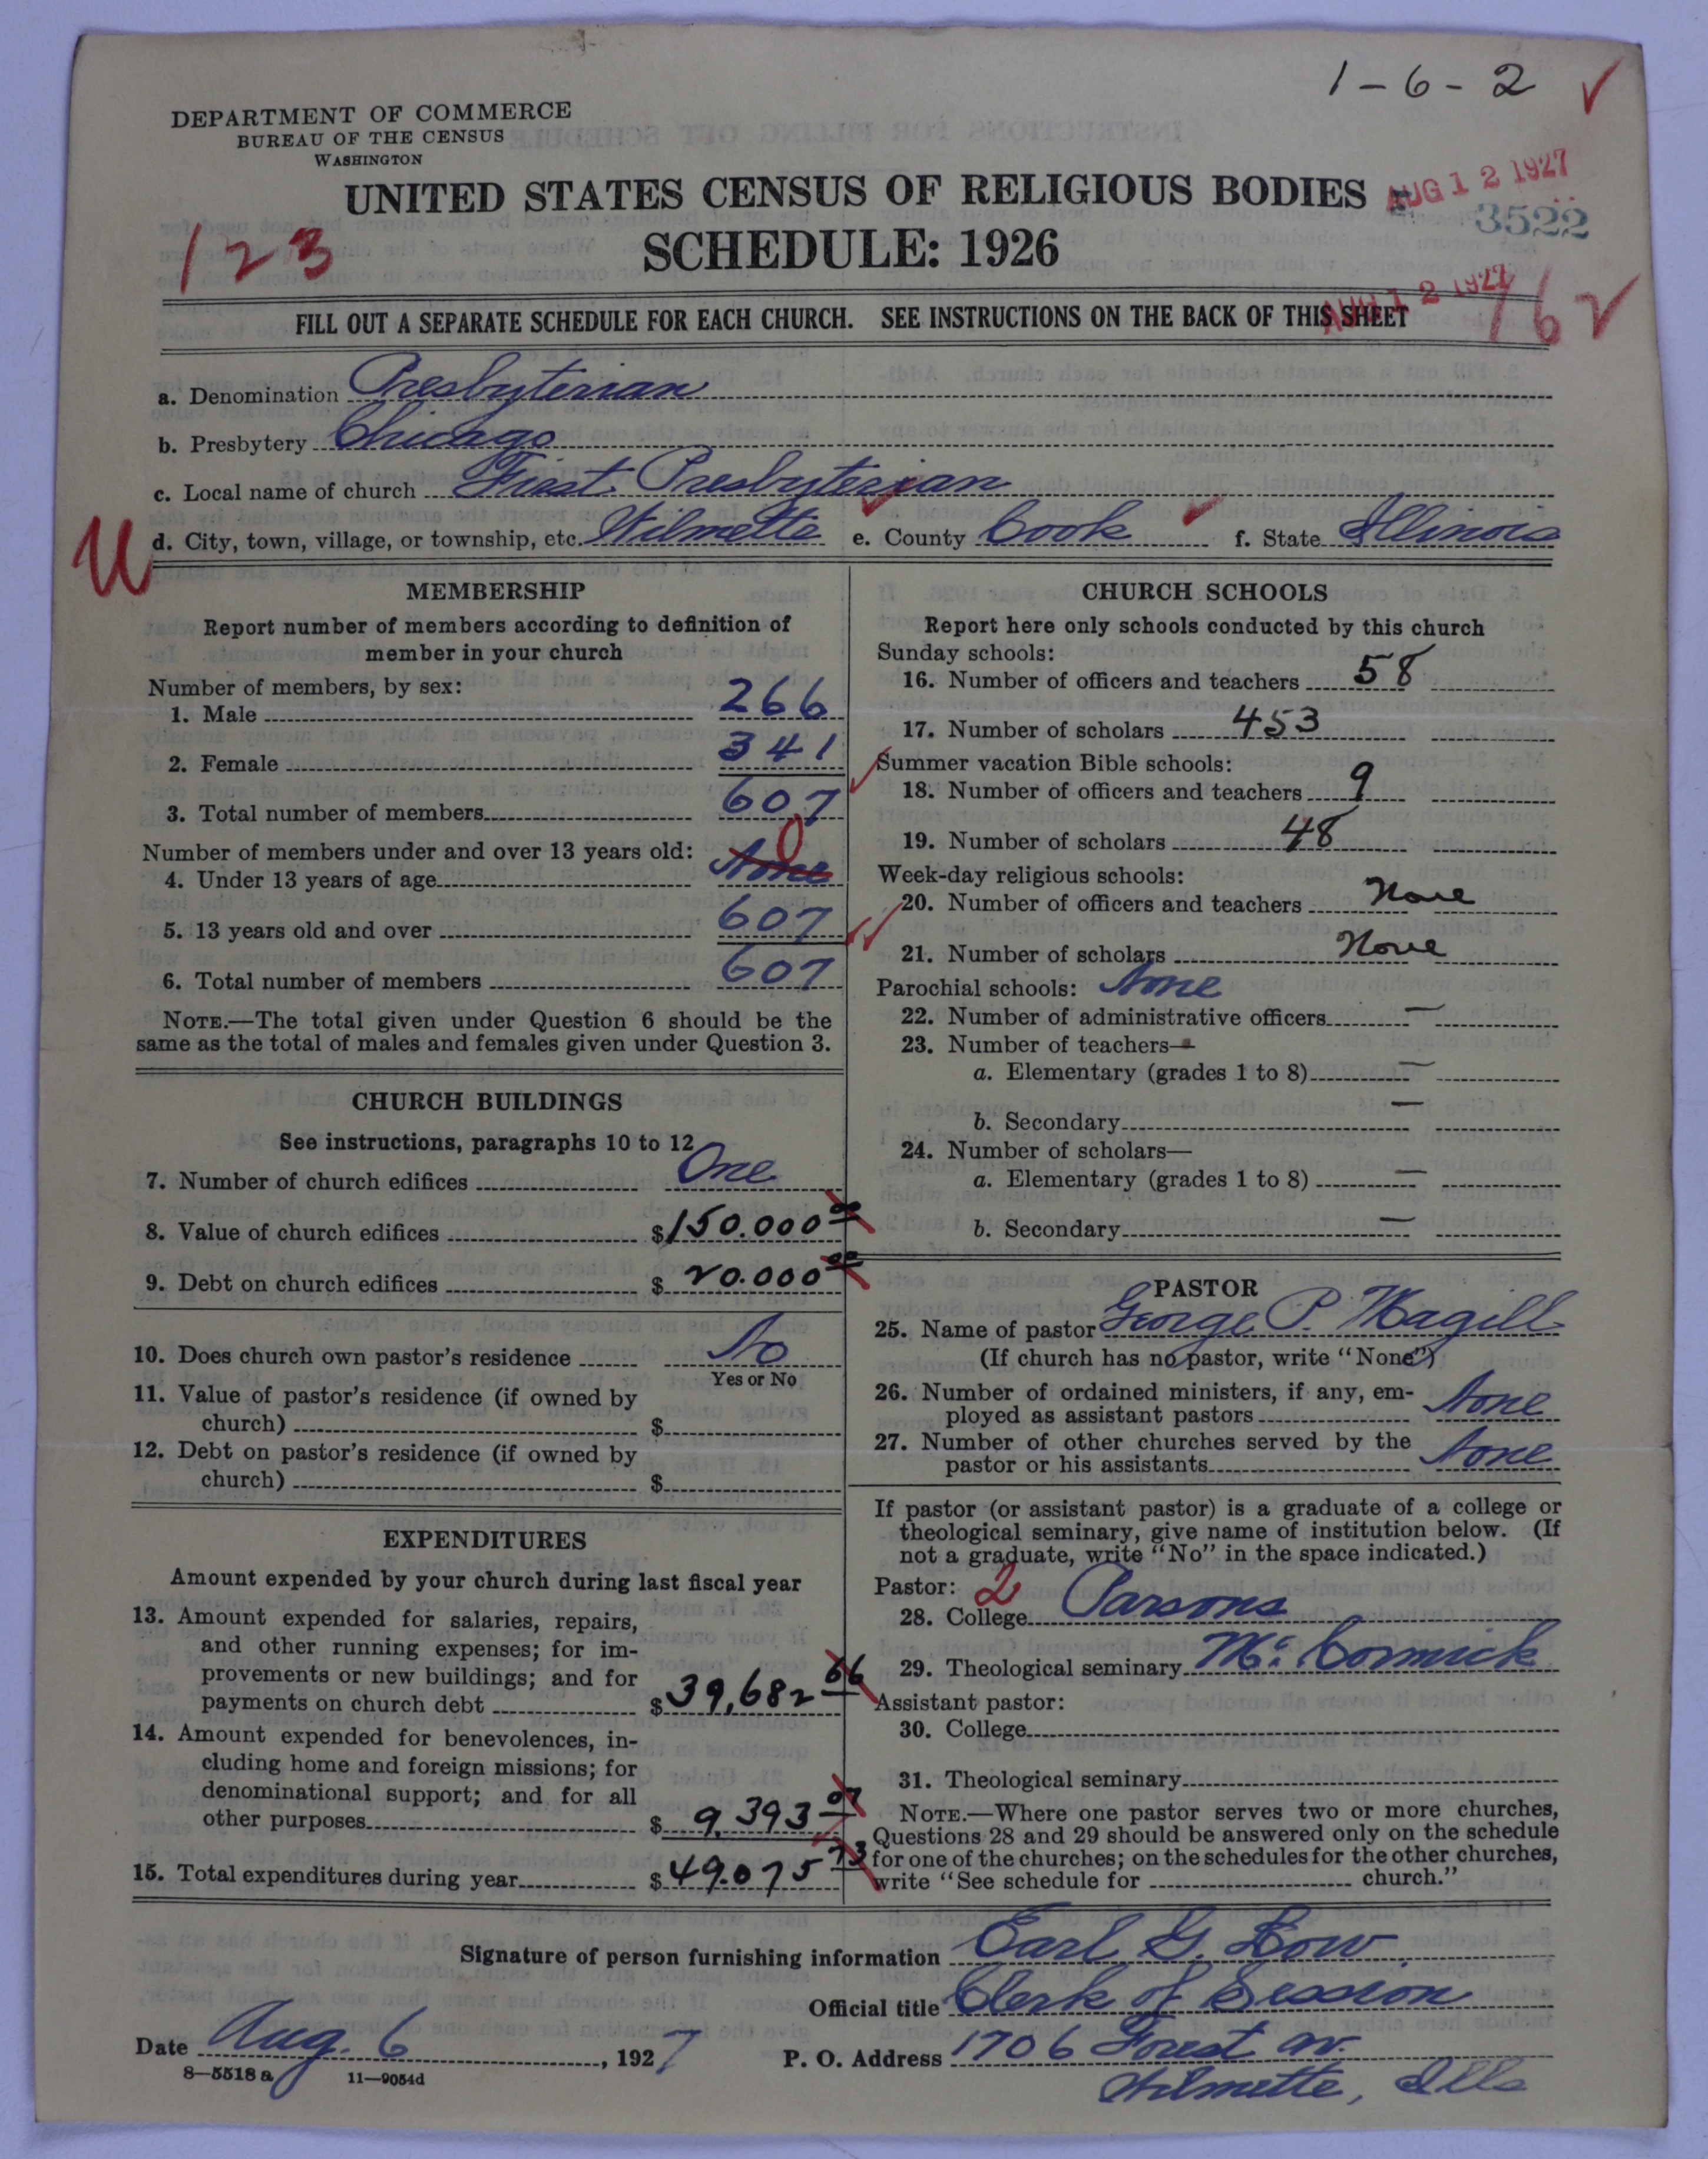 1-6-2 ✓
DEPARTMENT OF COMMERCE
BUREAU OF THE CENSUS
WASHINGTON
UNITED STATES CENSUS OF RELIGIOUS BODIES
AUG 12 1927
3522
SCHEDULE: 1926
123
AUG 12 1927
76 ✓
FILL OUT A SEPARATE SCHEDULE FOR EACH CHURCH. SEE INSTRUCTIONS ON THE BACK OF THIS SHEET
a. Denomination Presbyterian
b. Presbytery Chicago
c. Local name of church First Presbyterian
U
d. City, town, village, or township, etc. Wilmette e. County Cook f. State Illinois
MEMBERSHIP
Report number of members according to definition of
member in your church
Number of members, by sex:
1. Male 266
2. Female 341
3. Total number of members 607
Number of members under and over 13 years old:
4. Under 13 years of age None 0
5. 13 years old and over 607
6. Total number of members 607
NOTE.—The total given under Question 6 should be the
same as the total of males and females given under Question 3.
CHURCH BUILDINGS
See instructions, paragraphs 10 to 12
7. Number of church edifices One
8. Value of church edifices $150.000 00
9. Debt on church edifices $20.000 00
10. Does church own pastor's residence No
Yes or No
11. Value of pastor's residence (if owned by
church) $
12. Debt on pastor's residence (if owned by
church) $
EXPENDITURES
Amount expended by your church during last fiscal year
13. Amount expended for salaries, repairs,
and other running expenses; for im-
provements or new buildings; and for
payments on church debt $39,682 66
14. Amount expended for benevolences, in-
cluding home and foreign missions; for
denominational support; and for all
other purposes $9,393 07
15. Total expenditures during year $49.075 73
CHURCH SCHOOLS
Report here only schools conducted by this church
Sunday schools:
16. Number of officers and teachers 58
17. Number of scholars 453
Summer vacation Bible schools:
18. Number of officers and teachers 9
19. Number of scholars 48
Week-day religious schools:
20. Number of officers and teachers None
21. Number of scholars None
Parochial schools: None
22. Number of administrative officers —
23. Number of teachers—
a. Elementary (grades 1 to 8) —
b. Secondary —
24. Number of scholars—
a. Elementary (grades 1 to 8) —
b. Secondary —
PASTOR
25. Name of pastor George P. Magill
(If church has no pastor, write "None")
26. Number of ordained ministers, if any, em-
ployed as assistant pastors None
27. Number of other churches served by the
pastor or his assistants None
If pastor (or assistant pastor) is a graduate of a college or
theological seminary, give name of institution below. (If
not a graduate, write "No" in the space indicated.)
Pastor: 2
28. College Parsons
29. Theological seminary McCormick
Assistant pastor:
30. College
31. Theological seminary
NOTE.—Where one pastor serves two or more churches,
Questions 28 and 29 should be answered only on the schedule
for one of the churches; on the schedules for the other churches,
write "See schedule for church."
Signature of person furnishing information Earl G. Low
Official title Clerk of Session
Date Aug. 6, 1927 P. O. Address 1706 Forest av.
8—5518 a 11—9054d
Wilmette, Ills